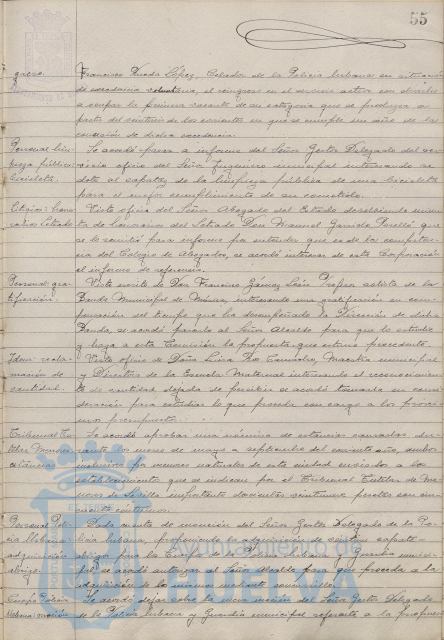 55
greso. Francisco Rueda López, Celador de la Policía Urbana en situación
de excedencia voluntaria, el reingreso en el servicio activo con derecho
a ocupar la primera vacante de su categoría que se produzca a
partir del veintiuno de los corrientes en que se cumple un año de la
concesión de dicha excedencia.
Personal limpieza pública: bicicleta. Se acordó pasar a informe del Señor Gestor Delegado del ser
vicio oficio del Señor Ingeniero municipal interesando se
dote al capataz de la limpieza pública de una bicicleta
para el mejor cumplimiento de su cometido.
Visto oficio del Señor Abogado del Estado devolviendo minu
ta de honorarios del Letrado Don Manuel
se le remitió para informe por entender que es de la competen
cia del Colegio de Abogados, se acordó interesar de esta Corporación
el informe de referencia.
Personal gratificación: Visto escrito de Don Francisco Gámez León Profesor solista de la
Banda Municipal de Música, interesando una gratificación en com
pensación del tiempo que ha desempeñado la Dirección de dicha
Banda, se acordó pasarlo al Señor Alcalde para que lo estudie
y haga a esta Comisión la propuesta que estime procedente.
Idem reclamación de cantidad. Visto oficio de Doña Luisa Maestra municipal
y Directora de la Escuela Maternal interesando el reconocimien
to de cantidad dejada de percibir se acordó tomarla en con
sideración para estudiar lo que proceda con cargo a los próxi
mos presupuestos.
Tribunal Tutelar Menores estancias Se acordó aprobar una nómina de estancias causadas du
rante los meses de mayo a septiembre del corriente año, ambos
inclusives por menores naturales de esta ciudad enviados a los
establecimientos que se indican por el Tribunal Tutelar de Me
nores de Sevilla importante doscientas veintinueve pesetas con cin
cuenta céntimos.
Personal Policía Urbana adquisición abrigos Dada cuenta de moción del Señor Gestor Delegado de la Poli
cía Urbana, proponiendo la adquisición de capote
abrigo para la Guardia municipal
se acordó autorizar al Señor Alcalde para que proceda a la
adquisición de los mismos mediante concursillo.
Se acordó dejar sobre la mesa moción del Señor Gestor Delegado
de la Policía Urbana y Guardia municipal referente a la propuesta
Ayuntamiento de
HUELVA